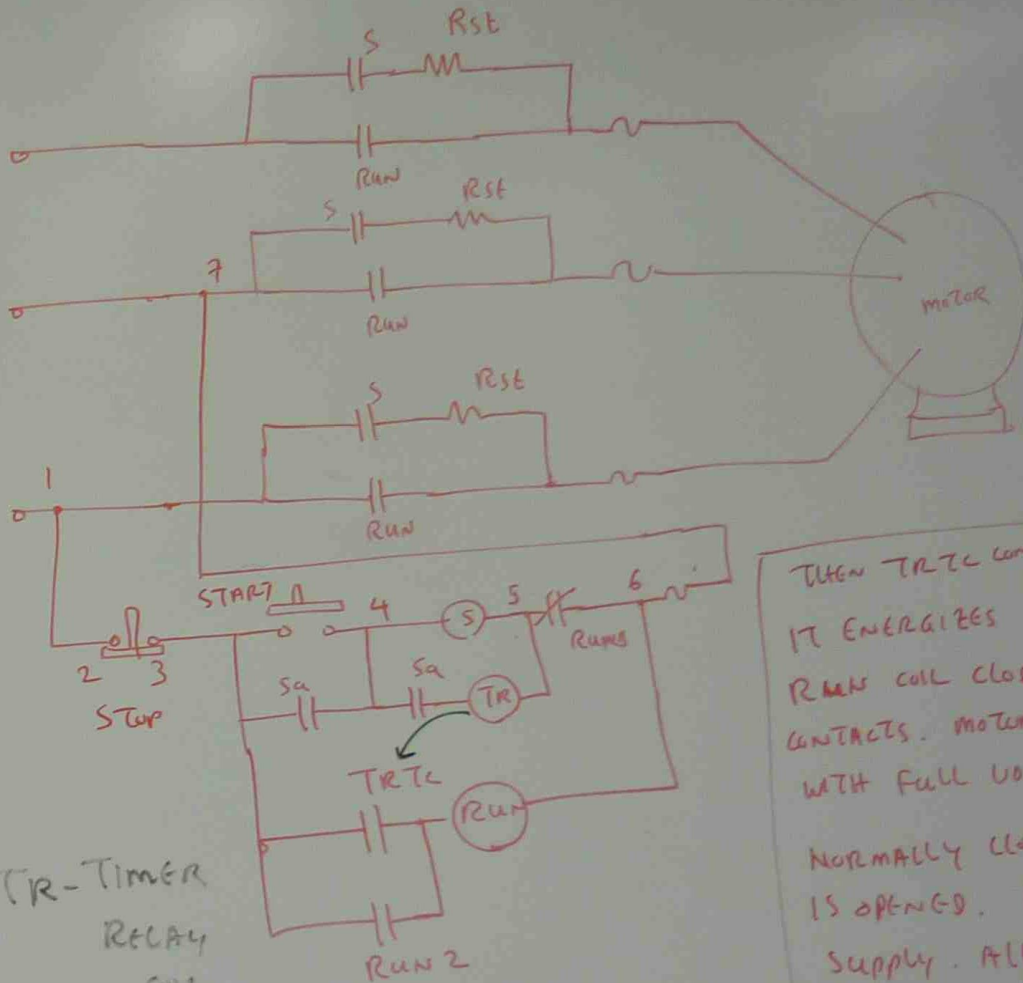 S Rst
RUN
S Rst
7
RUN
MOTOR
S Rst
1
RUN
START 4 S 5 6
RUN3
2 3
STOP
Sa Sa TR
TRTC
RUN
RUN 2
TR-TIMER
RELAY
THEN TRTC
IT ENERGIZES
RUN COIL
CONTACTS.
WITH FULL
NORMALLY
IS OPENED.
SUPPLY.